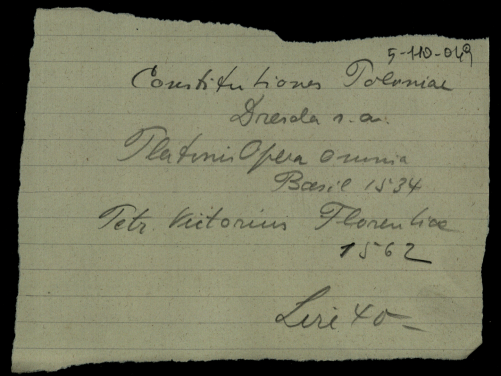 5-110-049
Constitutiones Poloniae
Dresda s.a.
Platonis Opera omnia
Basil 1534
Petr Victorius Florentiae
1562
Lire 40=